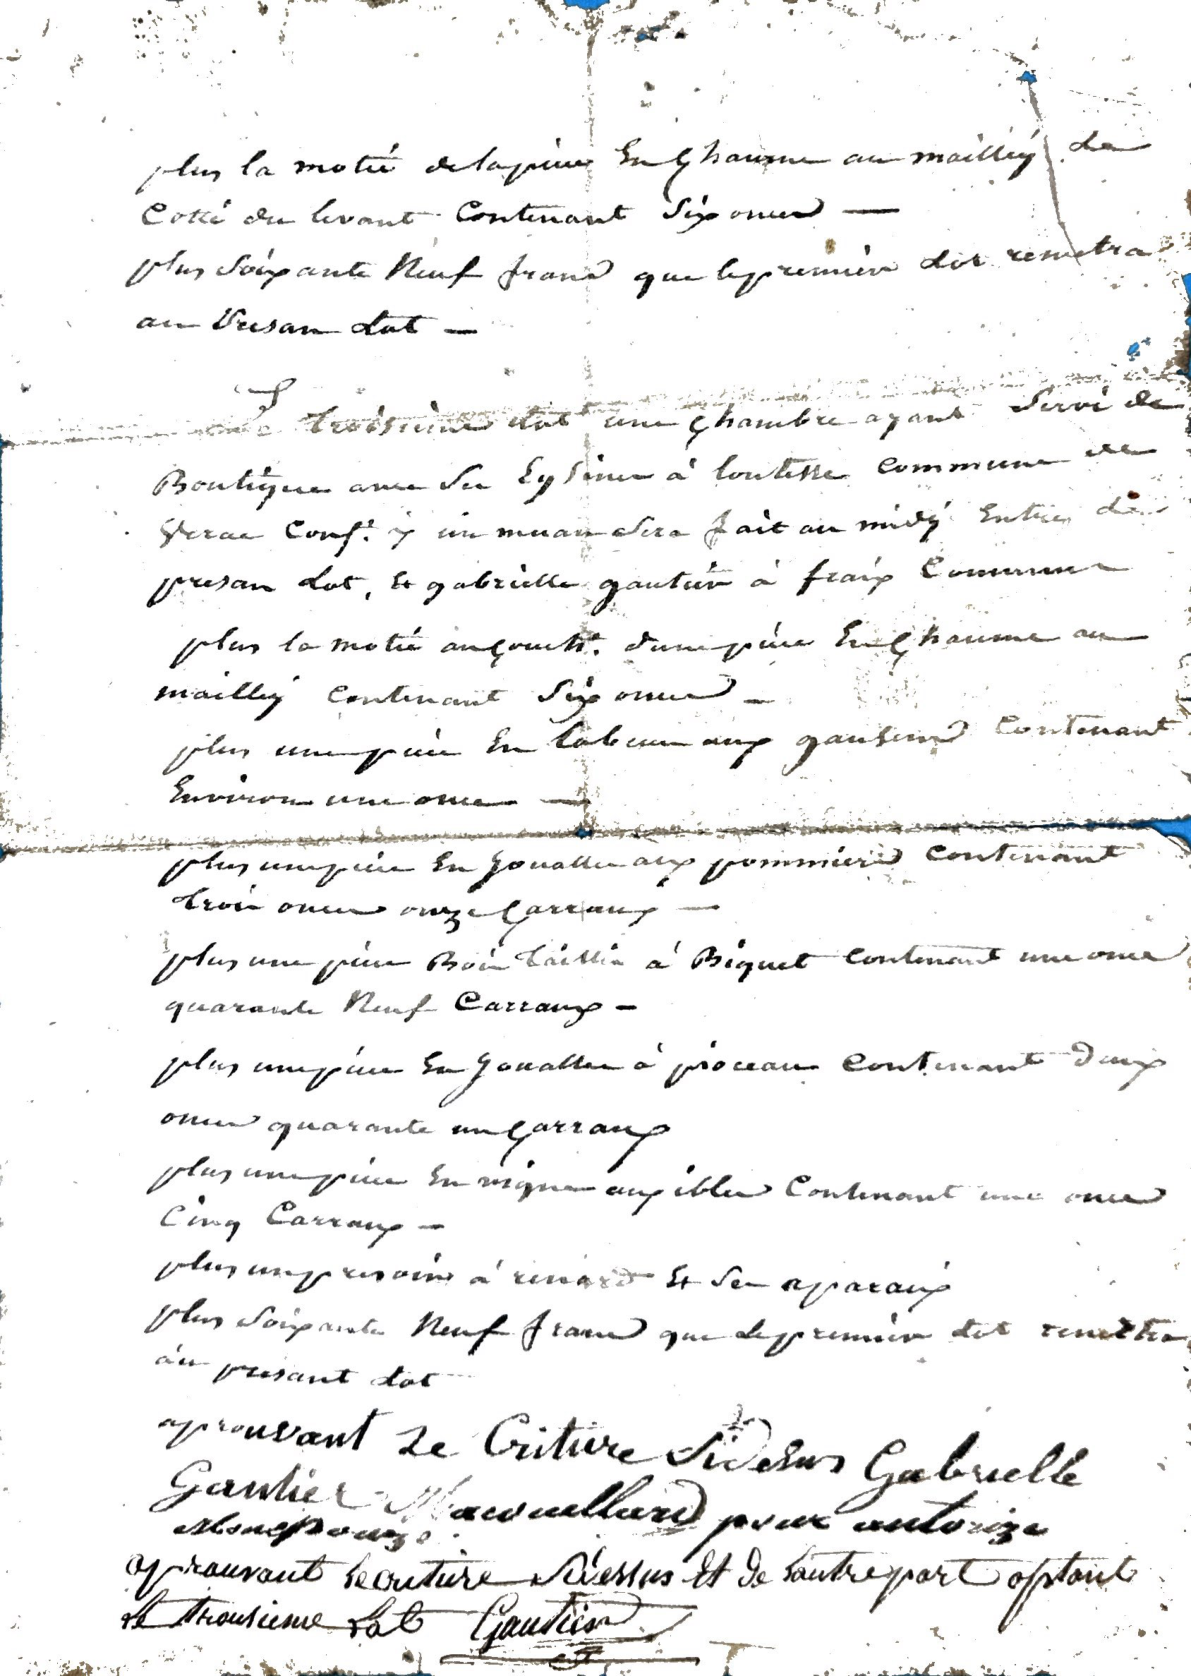 plus la motié de lapiece En Chaume au mailley du
Cotté du levant Contenant Six onces —
plus Soixante Neuf francs que lepremier Lot remetra
au Presan Lot —
Le troisieme Lot une Chambre ayant Servi de
Boutique avec Sa Cuisine à Commune de
Verac Conf.t y un muran Sera fait au midy Entre le
presan Lot, Et gabrielle gautier à fraix Commune
plus la motié au Couch.t dune piece En Chaume au
mailley Contenant Six onces —
plus une piece En labeur aux Contenant
Environ une once —
plus une piece En Joualle aux pommiers Contenant
trois onces onze Carraux —
plus une piece Bois taillis à Biquet Contenant une once
quarante Neuf Carraux —
plus une piece En Joualle à pioceau Contenant Deux
onces quarante un Carraux
plus une piece En vigne aux ibles Contenant une once
Cinq Carraux —
plus un presoir à renard Et Ses aparaux
plus Soixante Neuf francs que Lepremier Lot remettra
au presant Lot
aprouvant Le Criture Sidesus Gabrielle
Gautier pour autorize
mon Epouze
aprouvant Lecriture Sidessus Et de Lautre part optant
Le trousieme Lot Gautier